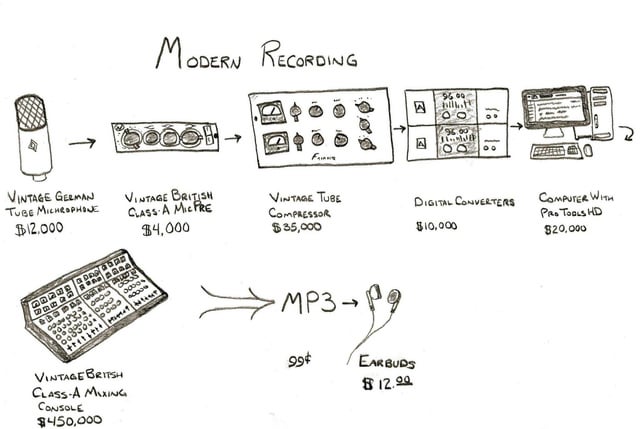 MODERN RECORDING
VINTAGE GERMAN
TUBE MICHROPHONE
$12,000
VINTAGE BRITISH
CLASS-A MIC PRE
$4,000
VINTAGE TUBE
COMPRESSOR
$35,000
DIGITAL CONVERTERS
$10,000
COMPUTER WITH
PRO TOOLS HD
$20,000
VINTAGE BRITISH
CLASS-A MIXING
CONSOLE
$450,000
MP3
99¢
EARBUDS
$12.00
A
96.00
A
96.00